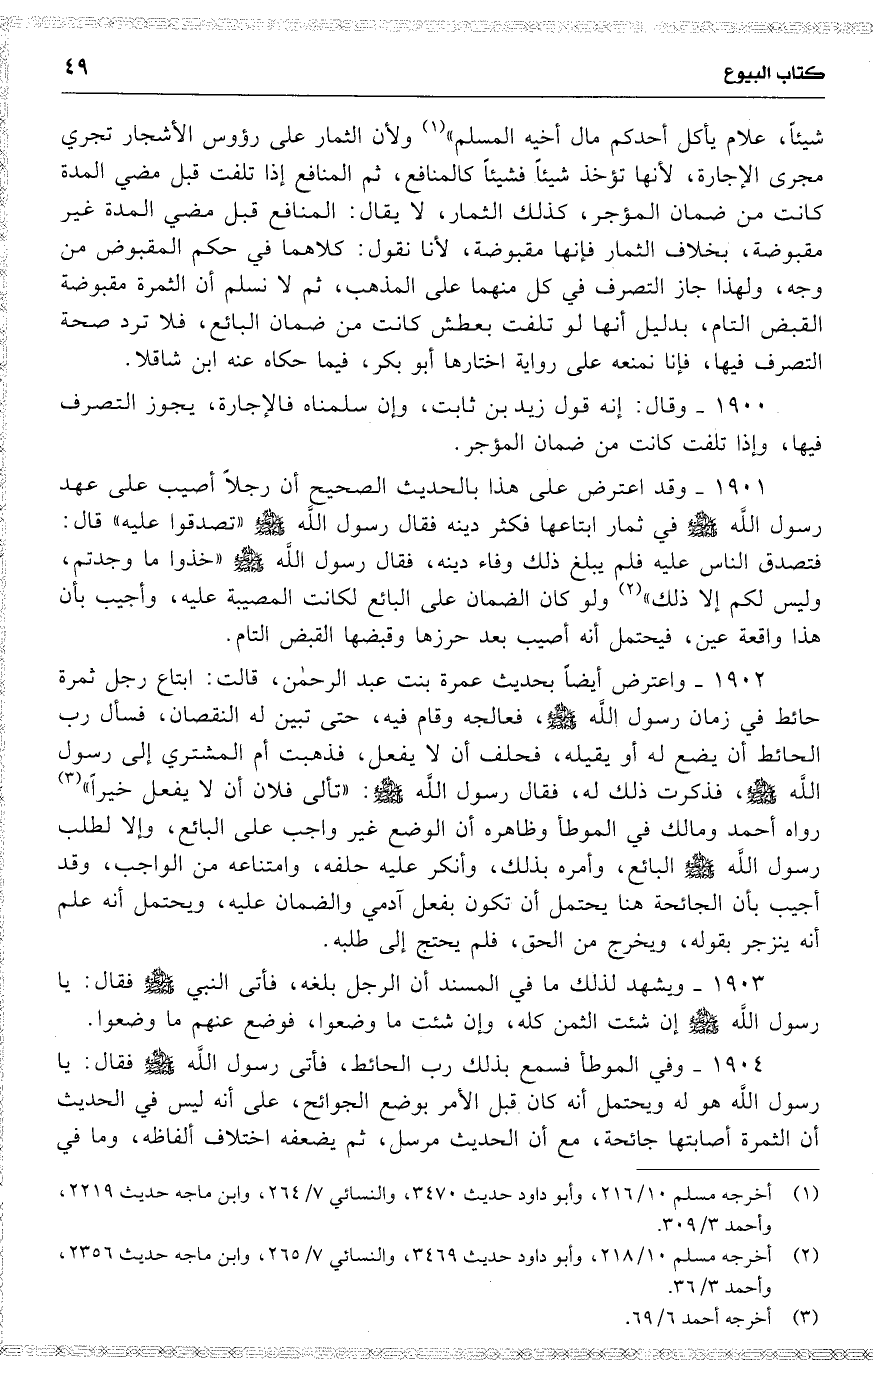 كتاب البيوع ٤٩
شيئاً، علام يأكل أحدكم مال أخيه المسلم»(١) ولأن الثمار على رؤوس الأشجار تجري
مجرى الإجارة، لأنها تؤخذ شيئاً فشيئاً كالمنافع، ثم المنافع إذا تلفت قبل مضي المدة
كانت من ضمان المؤجر، كذلك الثمار، لا يقال: المنافع قبل مضي المدة غير
مقبوضة، بخلاف الثمار فإنها مقبوضة، لأنا نقول: كلاهما في حكم المقبوض من
وجه، ولهذا جاز التصرف في كل منهما على المذهب، ثم لا نسلم أن الثمرة مقبوضة
القبض التام، بدليل أنها لو تلفت بعطش كانت من ضمان البائع، فلا ترد صحة
التصرف فيها، فإنا نمنعه على رواية اختارها أبو بكر، فيما حكاه عنه ابن شاقلا.
١٩٠٠ ـ وقال: إنه قول زيد بن ثابت، وإن سلمناه فالإجارة، يجوز التصرف
فيها، وإذا تلفت كانت من ضمان المؤجر.
١٩٠١ ـ وقد اعترض على هذا بالحديث الصحيح أن رجلاً أصيب على عهد
رسول اللَّه ﷺ في ثمار ابتاعها فكثر دينه فقال رسول اللَّه ﷺ «تصدقوا عليه» قال:
فتصدق الناس عليه فلم يبلغ ذلك وفاء دينه، فقال رسول اللَّه ﷺ «خذوا ما وجدتم،
وليس لكم إلا ذلك»(٢) ولو كان الضمان على البائع لكانت المصيبة عليه، وأجيب بأن
هذا واقعة عين، فيحتمل أنه أصيب بعد حرزها وقبضها القبض التام.
١٩٠٢ ـ واعترض أيضاً بحديث عمرة بنت عبد الرحمٰن، قالت: ابتاع رجل ثمرة
حائط في زمان رسول اللَّه ﷺ، فعالجه وقام فيه، حتى تبين له النقصان، فسأل رب
الحائط أن يضع له أو يقيله، فحلف أن لا يفعل، فذهبت أم المشتري إلى رسول
اللَّه ﷺ، فذكرت ذلك له، فقال رسول اللَّه ﷺ: «تألى فلان أن لا يفعل خيراً»(٣)
رواه أحمد ومالك في الموطأ وظاهره أن الوضع غير واجب على البائع، وإلا لطلب
رسول اللَّه ﷺ البائع، وأمره بذلك، وأنكر عليه حلفه، وامتناعه من الواجب، وقد
أجيب بأن الجائحة هنا يحتمل أن تكون بفعل آدمي والضمان عليه، ويحتمل أنه علم
أنه ينزجر بقوله، ويخرج من الحق، فلم يحتج إلى طلبه.
١٩٠٣ ـ ويشهد لذلك ما في المسند أن الرجل بلغه، فأتى النبي ﷺ فقال: يا
رسول اللَّه ﷺ إن شئت الثمن كله، وإن شئت ما وضعوا، فوضع عنهم ما وضعوا.
١٩٠٤ ـ وفي الموطأ فسمع بذلك رب الحائط، فأتى رسول اللَّه ﷺ فقال: يا
رسول اللَّه هو له ويحتمل أنه كان قبل الأمر بوضع الجوائح، على أنه ليس في الحديث
أن الثمرة أصابتها جائحة، مع أن الحديث مرسل، ثم يضعفه اختلاف ألفاظه، وما في
(١) أخرجه مسلم ١٠/٢١٦، وأبو داود حديث ٣٤٧٠، والنسائي ٧/٢٦٤، وابن ماجه حديث ٢٢١٩،
وأحمد ٣/٣٠٩.
(٢) أخرجه مسلم ١٠/٢١٨، وأبو داود حديث ٣٤٦٩، والنسائي ٧/٢٦٥، وابن ماجه حديث ٢٣٥٦،
وأحمد ٣/٣٦.
(٣) أخرجه أحمد ٦/٦٩.